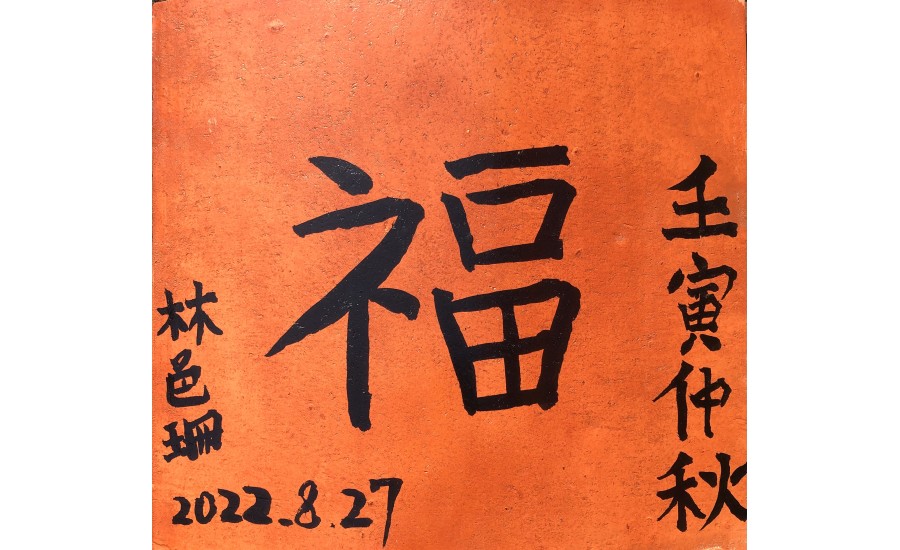 壬寅仲秋
福
林邑珊
2022.8.27